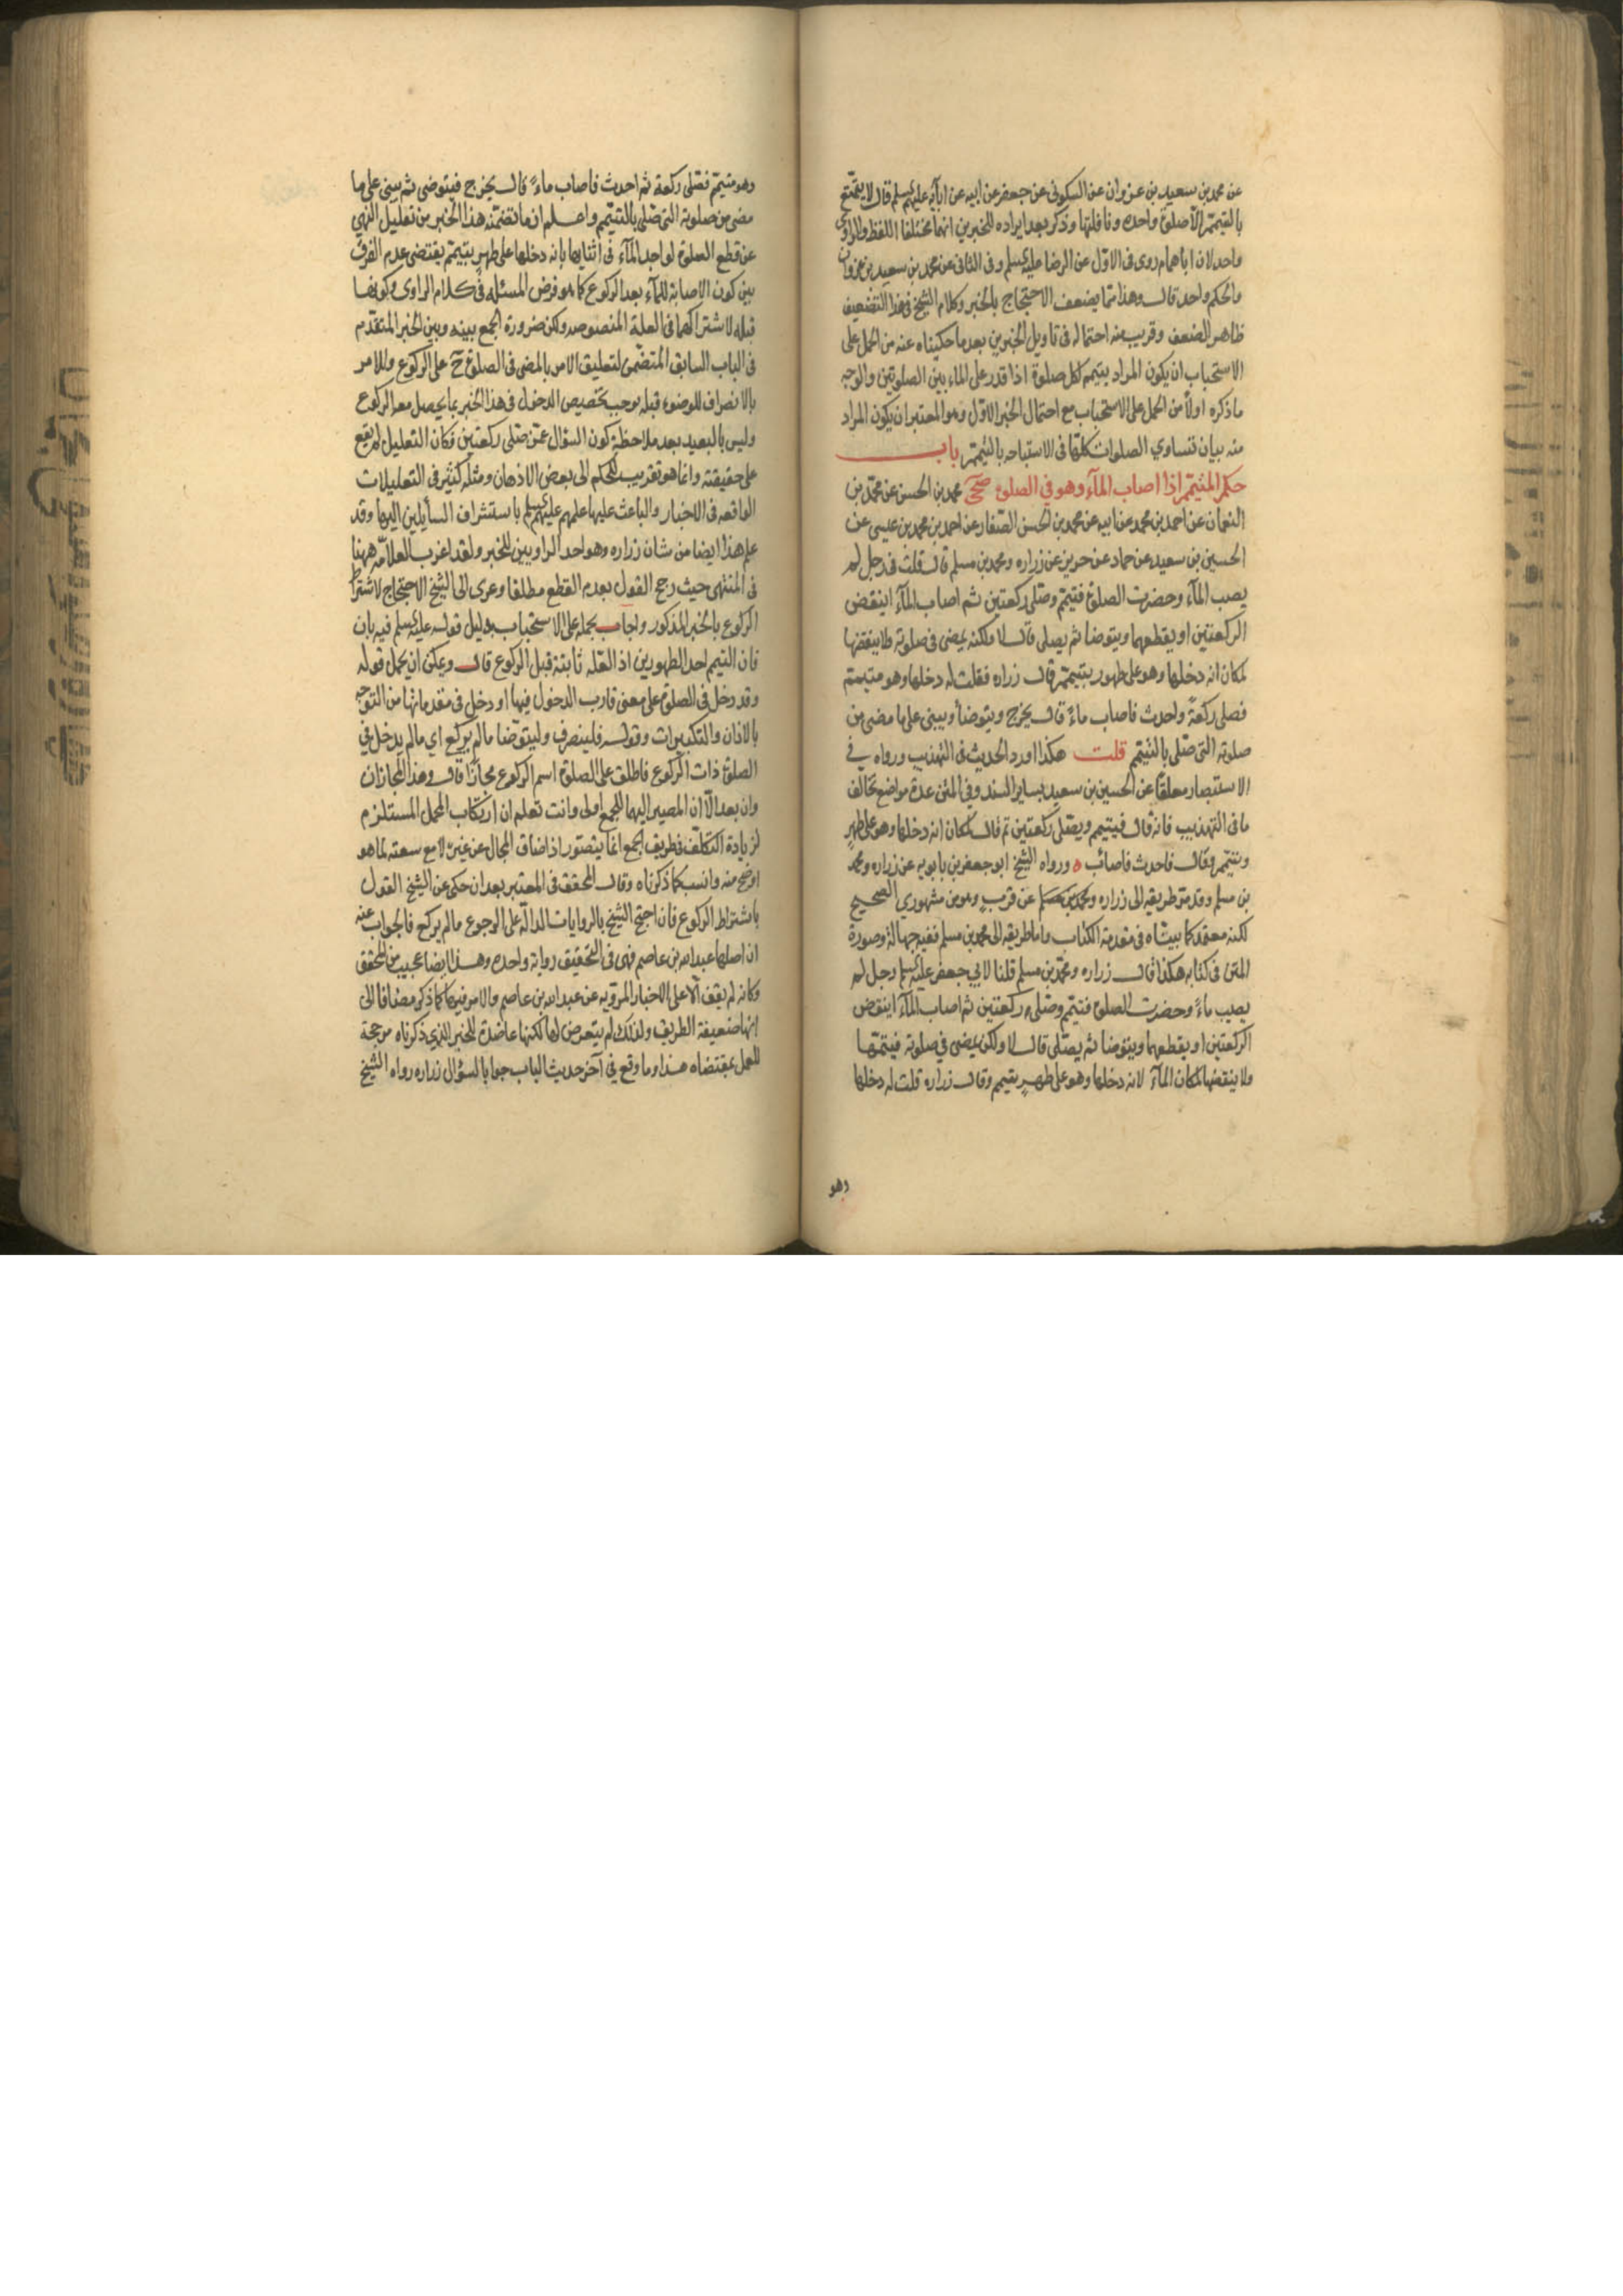 عن محمد بن سعيد بن غزوان عن السكوني عن جعفر عن ابيه عن ابائه عليهم السلم قال لا يتمتع
بالتيمم الا صلوة واحدة ونافلتها وذكر بعد ايراده للخبرين انهما مختلفا اللفظ والراوي
واحد لان ابا همام روى في الاول عن الرضا عليه السلم وفي الثاني عن محمد بن سعيد بن غزوان
والحكم واحد قال وهذا مما يضعف الاحتجاج بالخبر وكلام الشيخ في هذا التضعيف
ظاهر الضعف وقريب منه احتماله في تاويل الخبرين بعد ما حكيناه عنه من الحمل على
الاستحباب ان يكون المراد بتيمم لكل صلوة اذا قدر على الماء بين الصلوتين والوجه
ما ذكره اولا من الحمل على الاستحباب مع احتمال الخبر الاول وهو المعتبر ان يكون المراد
منه بيان تساوي الصلوات كلها في الاستباحه بالتيمم باب
حكم المتيمم اذا اصاب المآء وهو في الصلوة صحى محمد بن الحسن عن محمد بن
النعمان عن احمد بن محمد عن ابيه عن محمد بن الحسن الصفار عن احمد بن محمد بن عيسى عن
الحسين بن سعيد عن حماد عن حريز عن زراره ومحمد بن مسلم قال قلت في رجل لم
يصب المآء وحضرت الصلوة فتيمم وصلى ركعتين ثم اصاب المآء اينقض
الركعتين او يقطعهما ويتوضا ثم يصلى قال لا ولكنه يمضى في صلوته ولا ينقضها
لمكان انه دخلها وهو على طهور بتيمم قال زراره فقلت له دخلها وهو متيمم
فصلى ركعة واحدث فاصاب ماءً قال يخرج ويتوضأ ويبنى على ما مضى من
صلوته التى صلى بالتيمم قلت هكذا اورد الحديث في التهذيب ورواه في
الاستبصار معلقا عن الحسين بن سعيد بساير السند وفي المتن عدة مواضع تخالف
ما في التهذيب فانه قال فيتيمم ويصلى ركعتين ثم قال لمكان انه دخلها وهو على طهر
وتيمم وقال فاحدث فاصاب ورواه الشيخ ابو جعفر بن بابويه عن زراره ومحمد
بن مسلم وقد مر طريقه الى زراره ومحمد بن مسلم عن قرب وهو من مشهوري الصحيح
لكنه معتمد كما بيناه في مقدمة الكتاب واما طريقه الى محمد بن مسلم ففيه جهالة وصورة
المتن في كتابه هكذا قال زراره ومحمد بن مسلم قلنا لابي جعفر عليه السلم رجل لم
يصيب ماءً وحضرت الصلوة فتيمم وصلى ركعتين ثم اصاب المآء اينقض
الركعتين او يقطعهما ويتوضا ثم يصلى قال لا ولكن يمضى في صلوته فيتمها
ولا ينقضها لمكان المآء لانه دخلها وهو على طهرٍ بتيمم وقال زراره قلت له دخلها
وهو
وهو متيمم فصلى ركعة ثم احدث فاصاب ماءً قال يخرج فيتوضى ثم يبنى على ما
مضى من صلوته التى صلى بالتيمم واعلم ان ما تضمنه هذا الخبر من تعليل النهي
عن قطع الصلوة لواجد المآء في اثنايها بانه دخلها على طهرٍ بتيمم يقتضى عدم الفرق
بين كون الاصابة للمآء بعد الركوع كما هو فرض المسئله في كلام الراوى وكونها
قبله لاشتراكهما في العلة المنصوصه ولكن ضرورة الجمع بينه وبين الخبر المتقدم
في الباب السابق المتضمن لتعليق الامر بالمضى في الصلوة ح على الركوع وللامر
بالانصراف للوضوء قبله يوجب تخصيص الدخول في هذا الخبر بما يحصل معه الركوع
وليس بالبعيد بعد ملاحظة كون السؤال عمن صلى ركعتين فكان التعليل لم يقع
على حقيقته وانما هو تقريب للحكم الى بعض الاذهان ومثله كثير في التعليلات
الواقعه في الاخبار والباعث عليها علمهم عليهم السلم باستشراف السأيلين اليها وقد
علم هذا ايضا من شان زراره وهو احد الراويين للخبر ولقد اغرب العلامه ههنا
في المنتهى حيث رجح القول بعدم القطع مطلقا وعزى الى الشيخ الاحتجاج لاشتراط
الركوع بالخبر المذكور واجاب بحمله على الاستحباب بدليل قوله عليه السلم فيه بان
فان التيمم احد الطهورين اذ العله ثابتة قبل الركوع قال ويمكن ان يحمل قوله
وقد دخل في الصلوة على معنى قارب الدخول فيها او دخل في مقدماتها من التوجه
بالاذان والتكبيرات وقوله فلينصرف وليتوضا ما لم يركع اي ما لم يدخل في
الصلوة ذات الركوع فاطلق على الصلوة اسم الركوع مجازًا قال وهذا المجازان
وان بعدا الّا ان المصير اليهما للجمع اولى وانت تعلم ان ارتكاب المحمل المستلزم
لزيادة التكلف في طريق الجمع انما يتصور اذا ضاق المجال عن غيره لا مع سعته لما هو
اوضح منه وانسب كما ذكرناه وقال المحقق في المعتبر بعد ان حكى عن الشيخ القول
باشتراط الركوع فان احتج الشيخ بالروايات الدالة على الرجوع ما لم يركع فالجواب عنه
ان اصلها عبد الله بن عاصم فهى في التحقيق رواية واحده وهذا ايضا عجيب من المحقق
وكانه لم يقف الا على الاخبار المرويه عن عبد الله بن عاصم والامر فيها كما ذكر مضافا الى
انها ضعيفة الطريق ولذلك لم يتعرض لها لكنها عاضدة للخبر الذي ذكرناه مرجحة
للعمل بمقتضاه هذا وما وقع في آخر حديث الباب جوابا لسؤال زراره رواه الشيخ